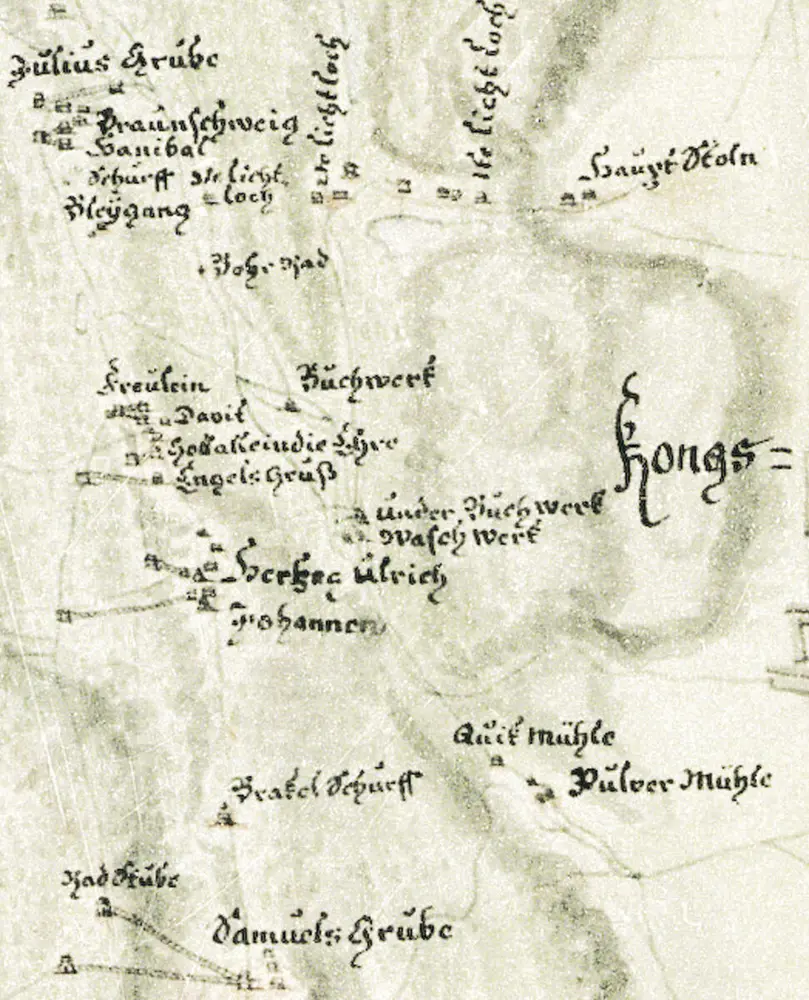 Julius Grube
Braunschweig
Hanibal
Schurff
licht
loch
Bleÿgang
lichtloch
1te lichtloch
Haupt Stoln
Bohr Rad
Freülein
Buchwerk
David
Gott allein die Ehre
Engels Gruß
Kongs=
under Buchwerk
Waschwerk
Hertzog Ulrich
Johannen
Quik Mühle
Pulver Mühle
Brakel Schurff
Rad Stube
Samuels Grube